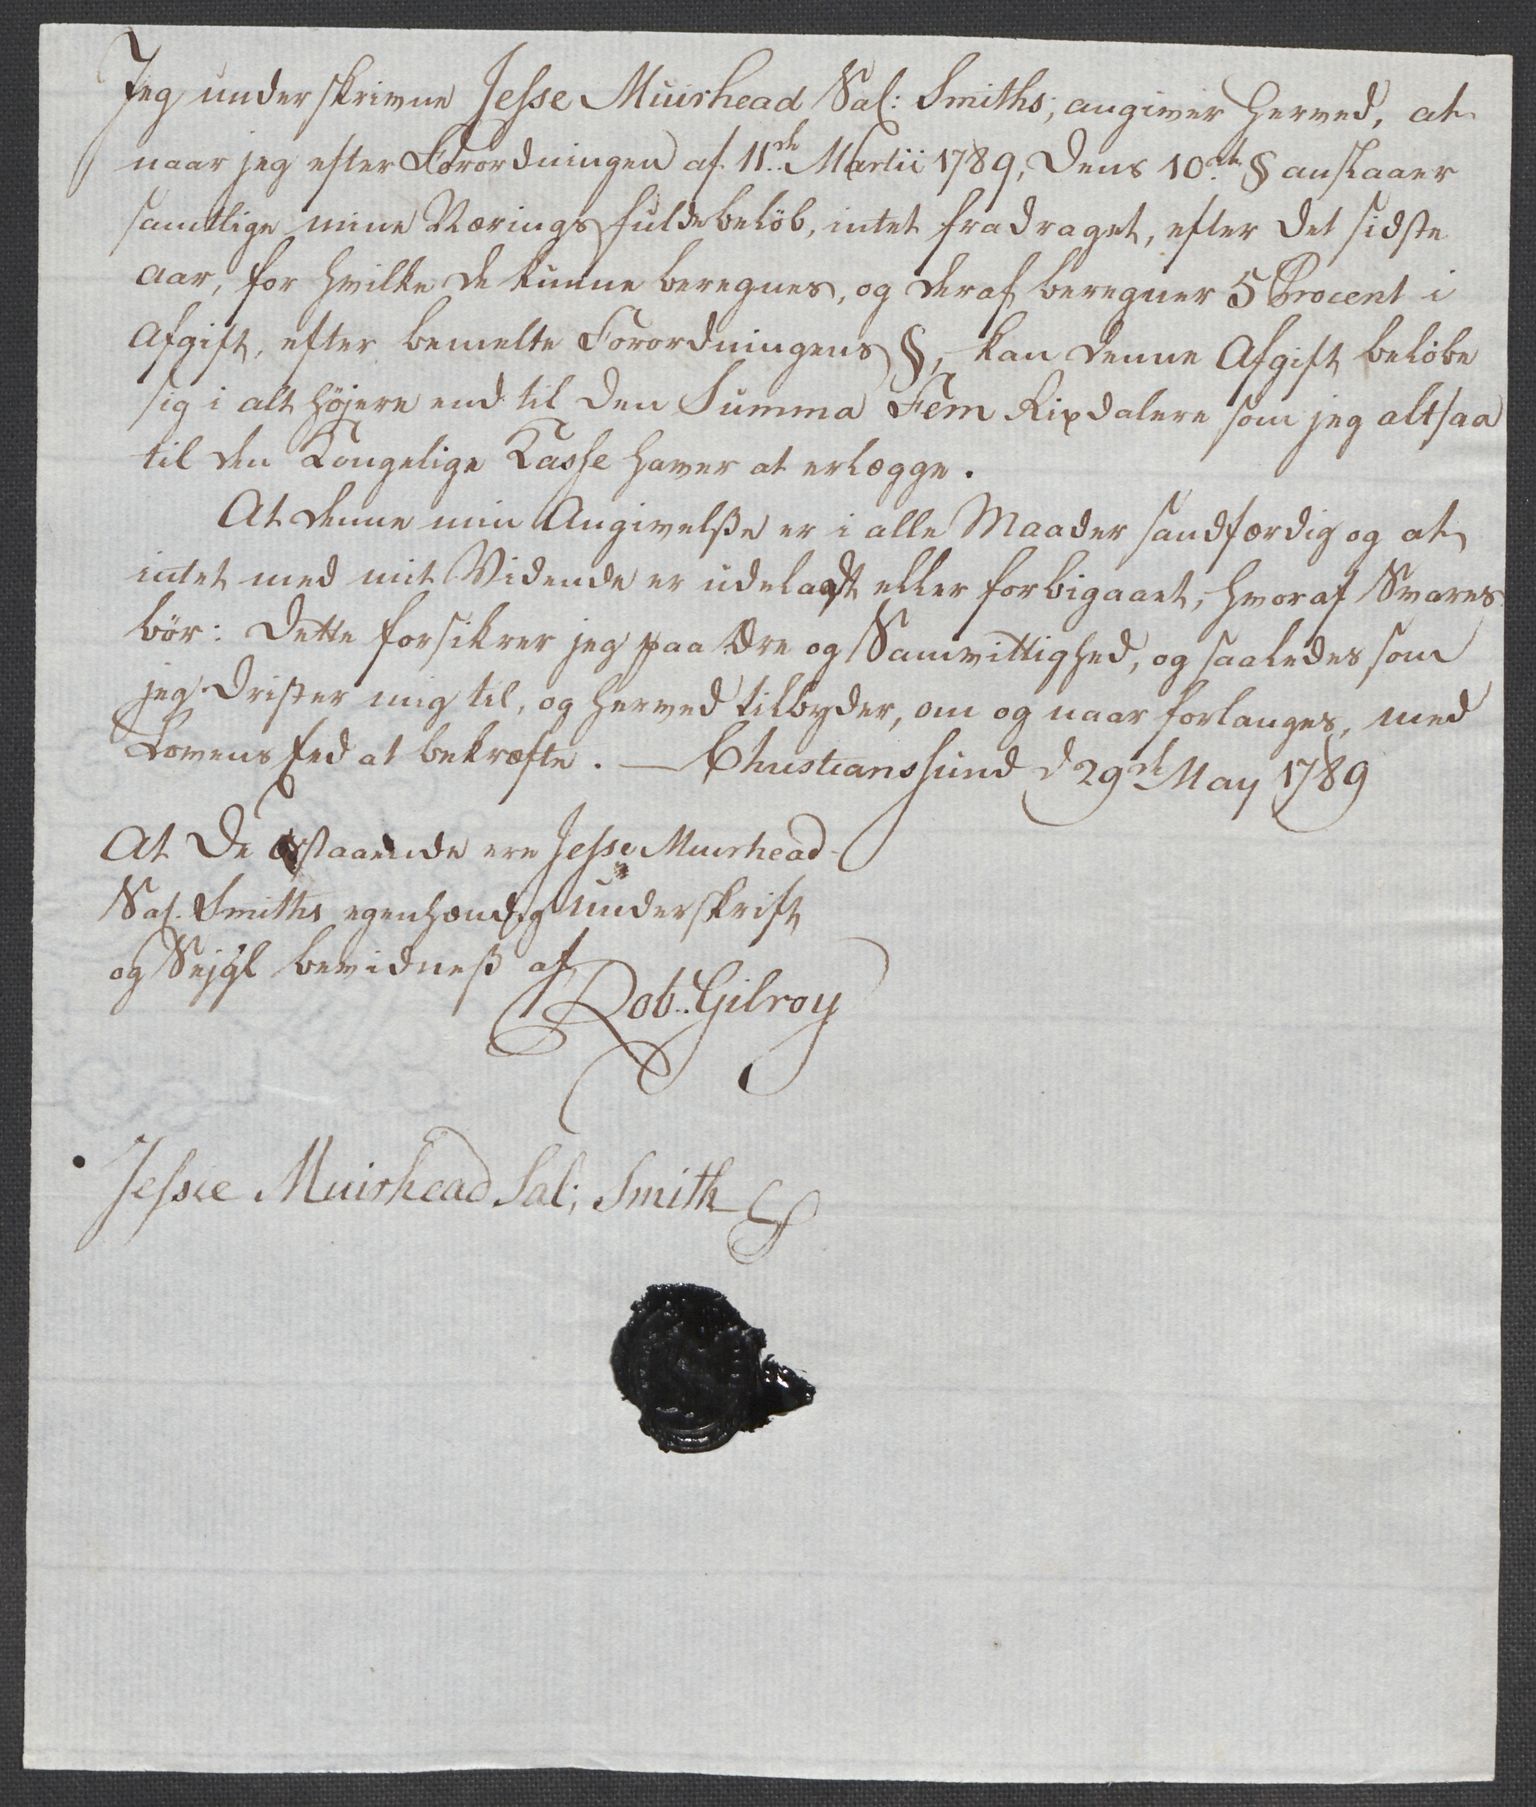 Jeg underskrivne Jesse Muirhead Sal: Smiths; angiver herved, at
naar jeg efter Forordningen af 11.de Martii 1789, dens 10.de § anslaaer
samtlige mine Nærings fulde beløb, intet fradraget, efter det sidste
aar, for hvilke de kunne beregnes, og deraf beregner 5 Procent i
Afgift, efter bemelte Forordningens §, kan denne Afgift beløbe
sig i alt højere end til den Summa Fem Rixdalere som jeg altsaa
til den Kongelige Kasse haver at erlægge.
At denne min Angivelße er i alle Maader sandfærdig og at
intet med mit Vidende er udeladt eller forbigaaet, hvoraf Svares
bör: dette forsikrer jeg paa Ære og Samvittighed, og saaledes som
jeg drister mig til, og herved tilbyder, om og naar forlanges, med
Lovens Eed at bekræfte. — Christianssund d 29de May 1789
At De staaende ere Jesse Muirhead
Sal. Smiths egenhændig underskrift
og Sejgl bevidneß af
Rob. Gilroy
Jessie Muirhead Sal; Smith